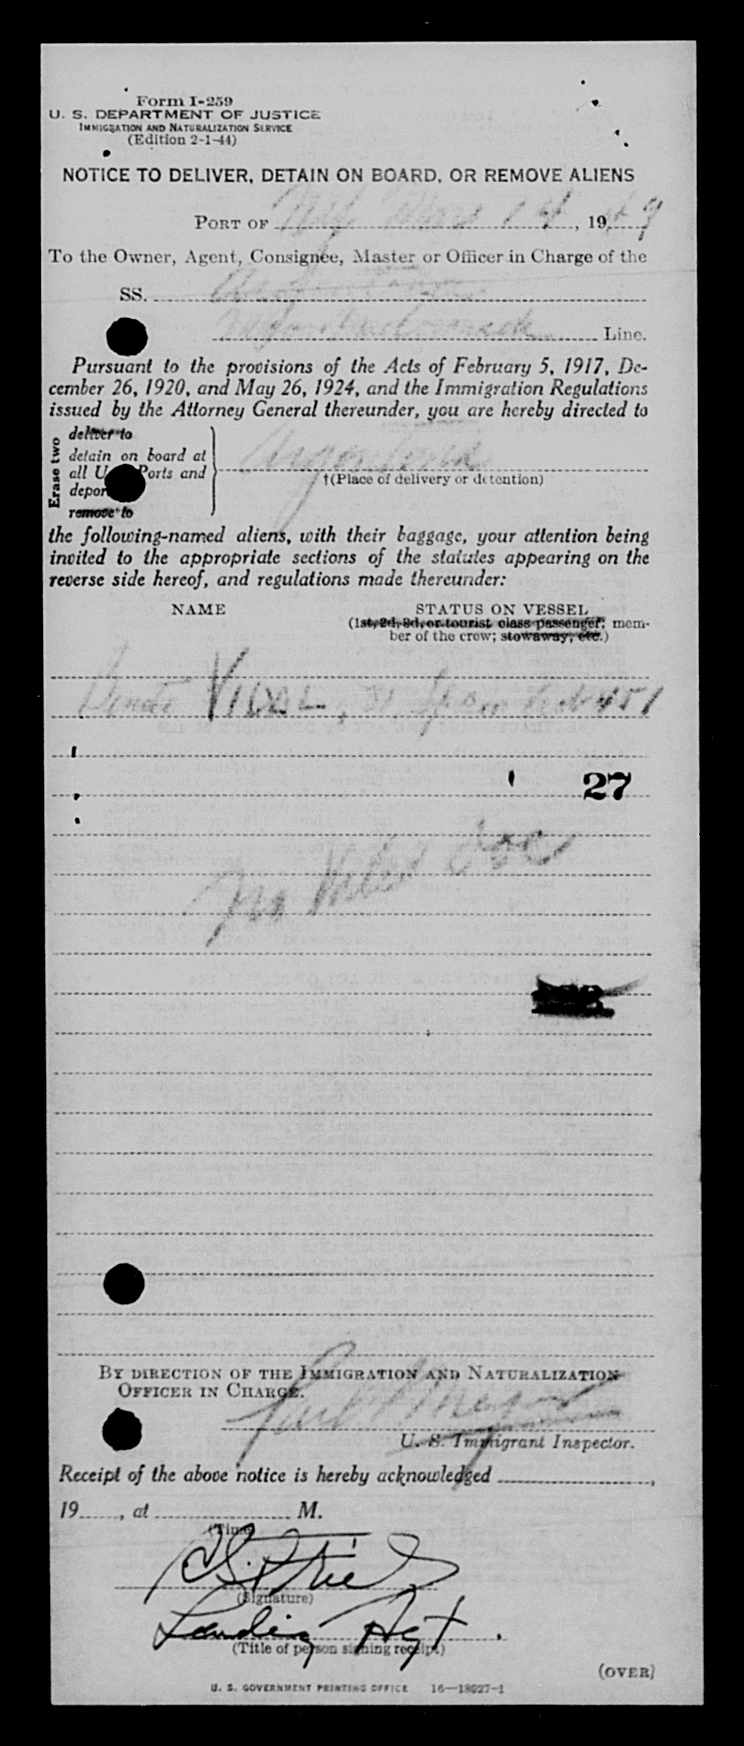 Form I-259
U. S. DEPARTMENT OF JUSTICE
IMMIGRATION AND NATURALIZATION SERVICE
(Edition 2-1-44)
NOTICE TO DELIVER, DETAIN ON BOARD, OR REMOVE ALIENS
PORT OF NY Mar 14, 1949
To the Owner, Agent, Consignee, Master or Officer in Charge of the
SS.
Line.
Pursuant to the provisions of the Acts of February 5, 1917, De-
cember 26, 1920, and May 26, 1924, and the Immigration Regulations
issued by the Attorney General thereunder, you are hereby directed to
Erase two
deliver to
detain on board at
all U Ports and
depor
remove to
Argentina
†(Place of delivery or detention)
the following-named aliens, with their baggage, your attention being
invited to the appropriate sections of the statutes appearing on the
reverse side hereof, and regulations made thereunder:
NAME STATUS ON VESSEL
(1st, 2d, 3d, or tourist class passenger; mem-
ber of the crew; stowaway, etc.)
VIDAL, 31 Span
27
No Valid Doc
BY DIRECTION OF THE IMMIGRATION AND NATURALIZATION
OFFICER IN CHARGE.
U. S. Immigrant Inspector.
Receipt of the above notice is hereby acknowledged ,
19 , at M.
(Time)
(Signature)
Landing Agt.
(Title of person signing receipt)
(OVER)
U. S. GOVERNMENT PRINTING OFFICE 16—18927-1